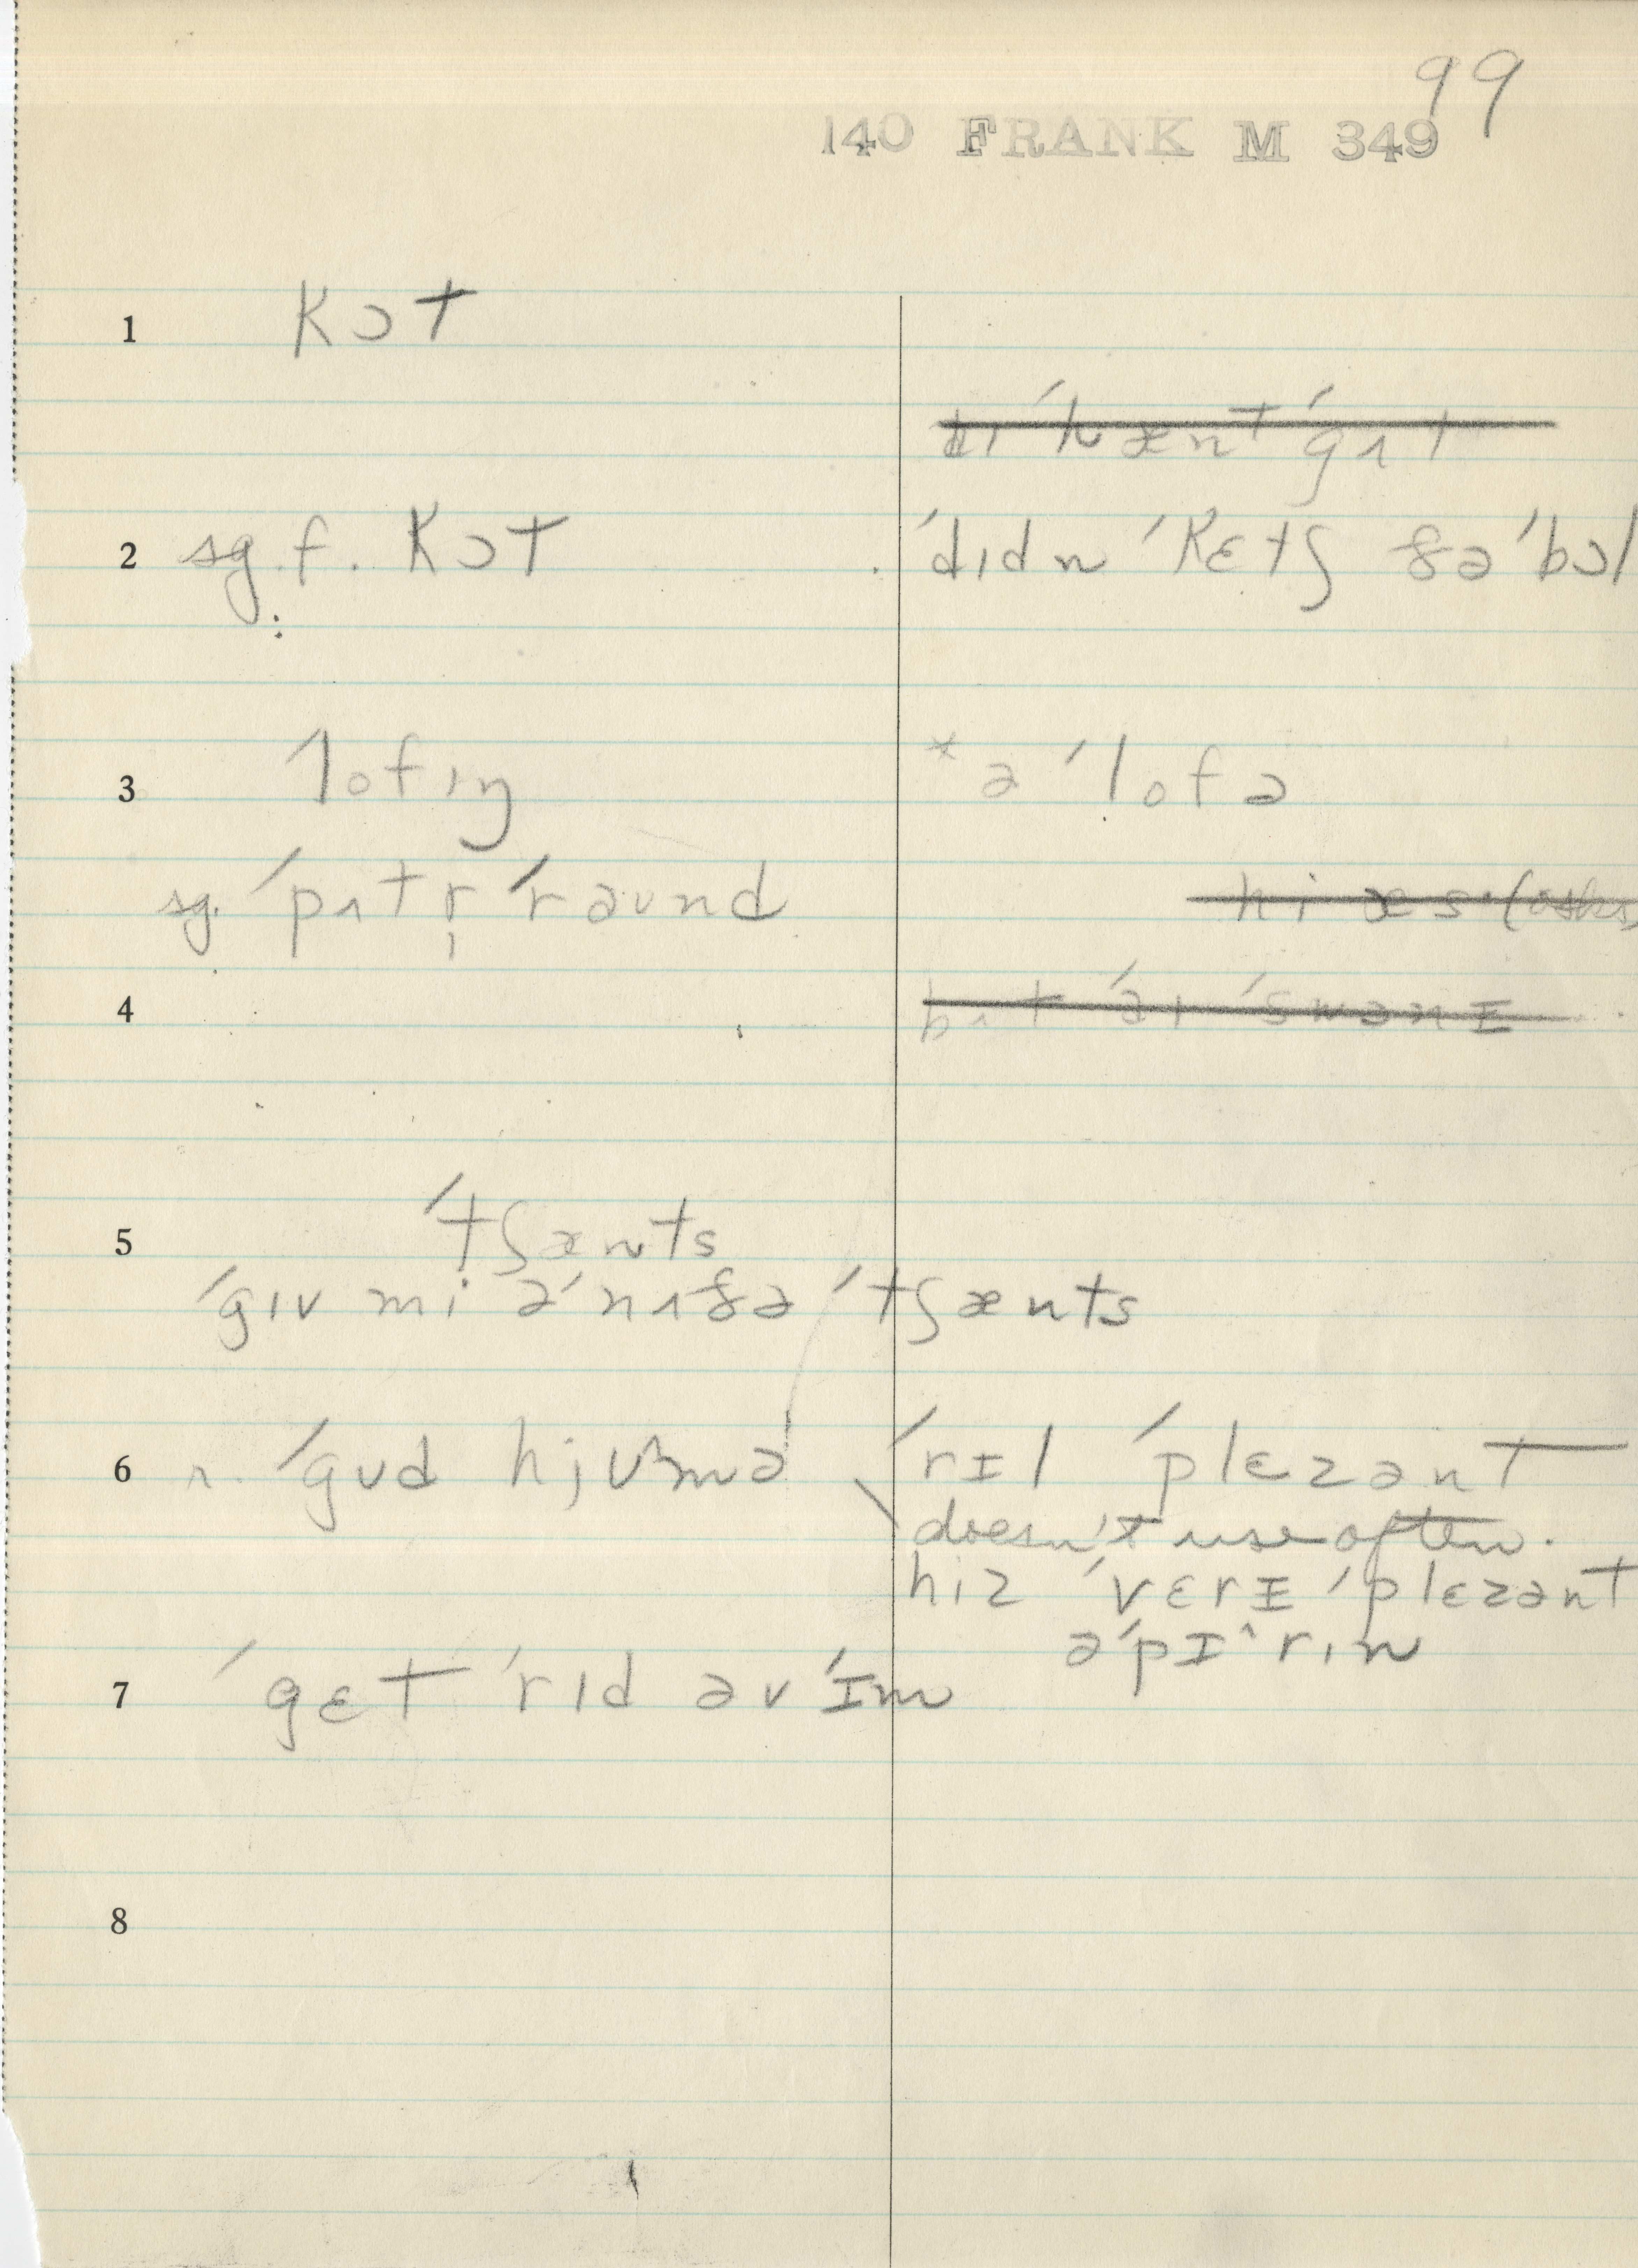 99
140 FRANK M 349
1 kɔt
2 sg. f. kɔt
ˈdɪdn ˈkɛtʃ ðəˈbɔl
3 ˈlofɪŋ
* ə ˈlofə
sg. ˈpʌtr̩ ˈraʊnd
hi æs (asks)
4
5 ˈtʃænts
ˈgɪv mi əˈnʌðə ˈtʃænts
6 ʌ. ˈgʊd hjʊ^mə
ˈrɪl ˈplɛzənt
doesn't use often.
hiz ˈvɛrɪ ˈplɛzənt
əˈpɪ^rɪn
7 ˈgɛt ˈrɪd əv ˈɪm
8